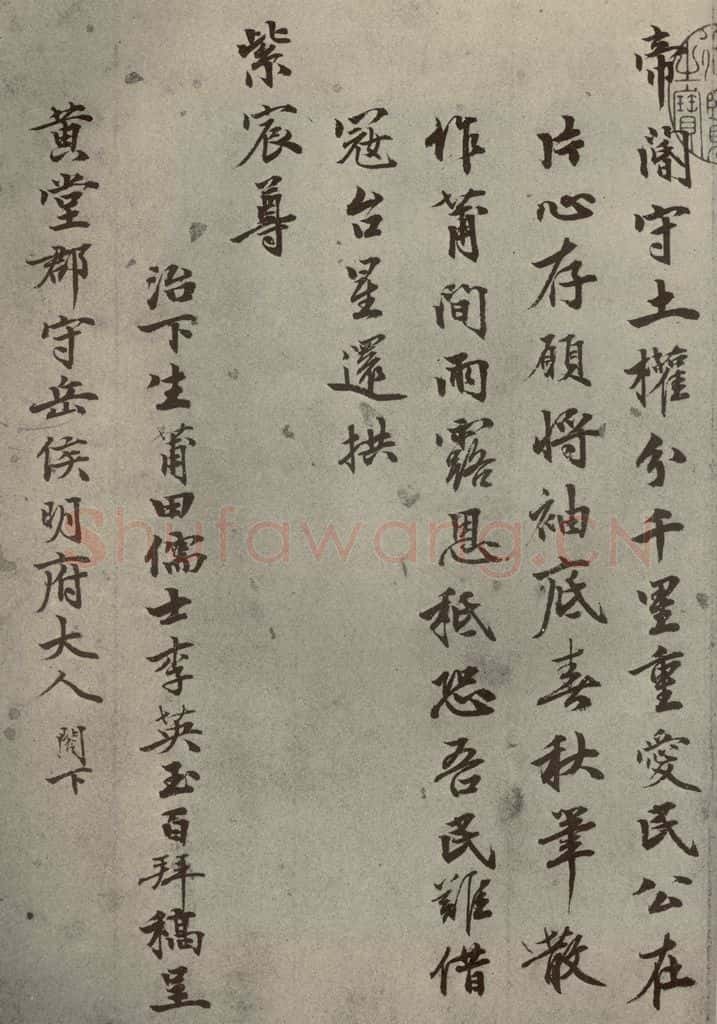 帝閽守土權分千里重愛民公在
片心存願將袖底春秋筆散
作莆間雨露恩秪恐吾民難借
寇台星還拱
紫宸尊
治下生莆田儒士李英玉百拜稿呈
黃堂郡守岳侯明府大人閣下
Shufawang.CN